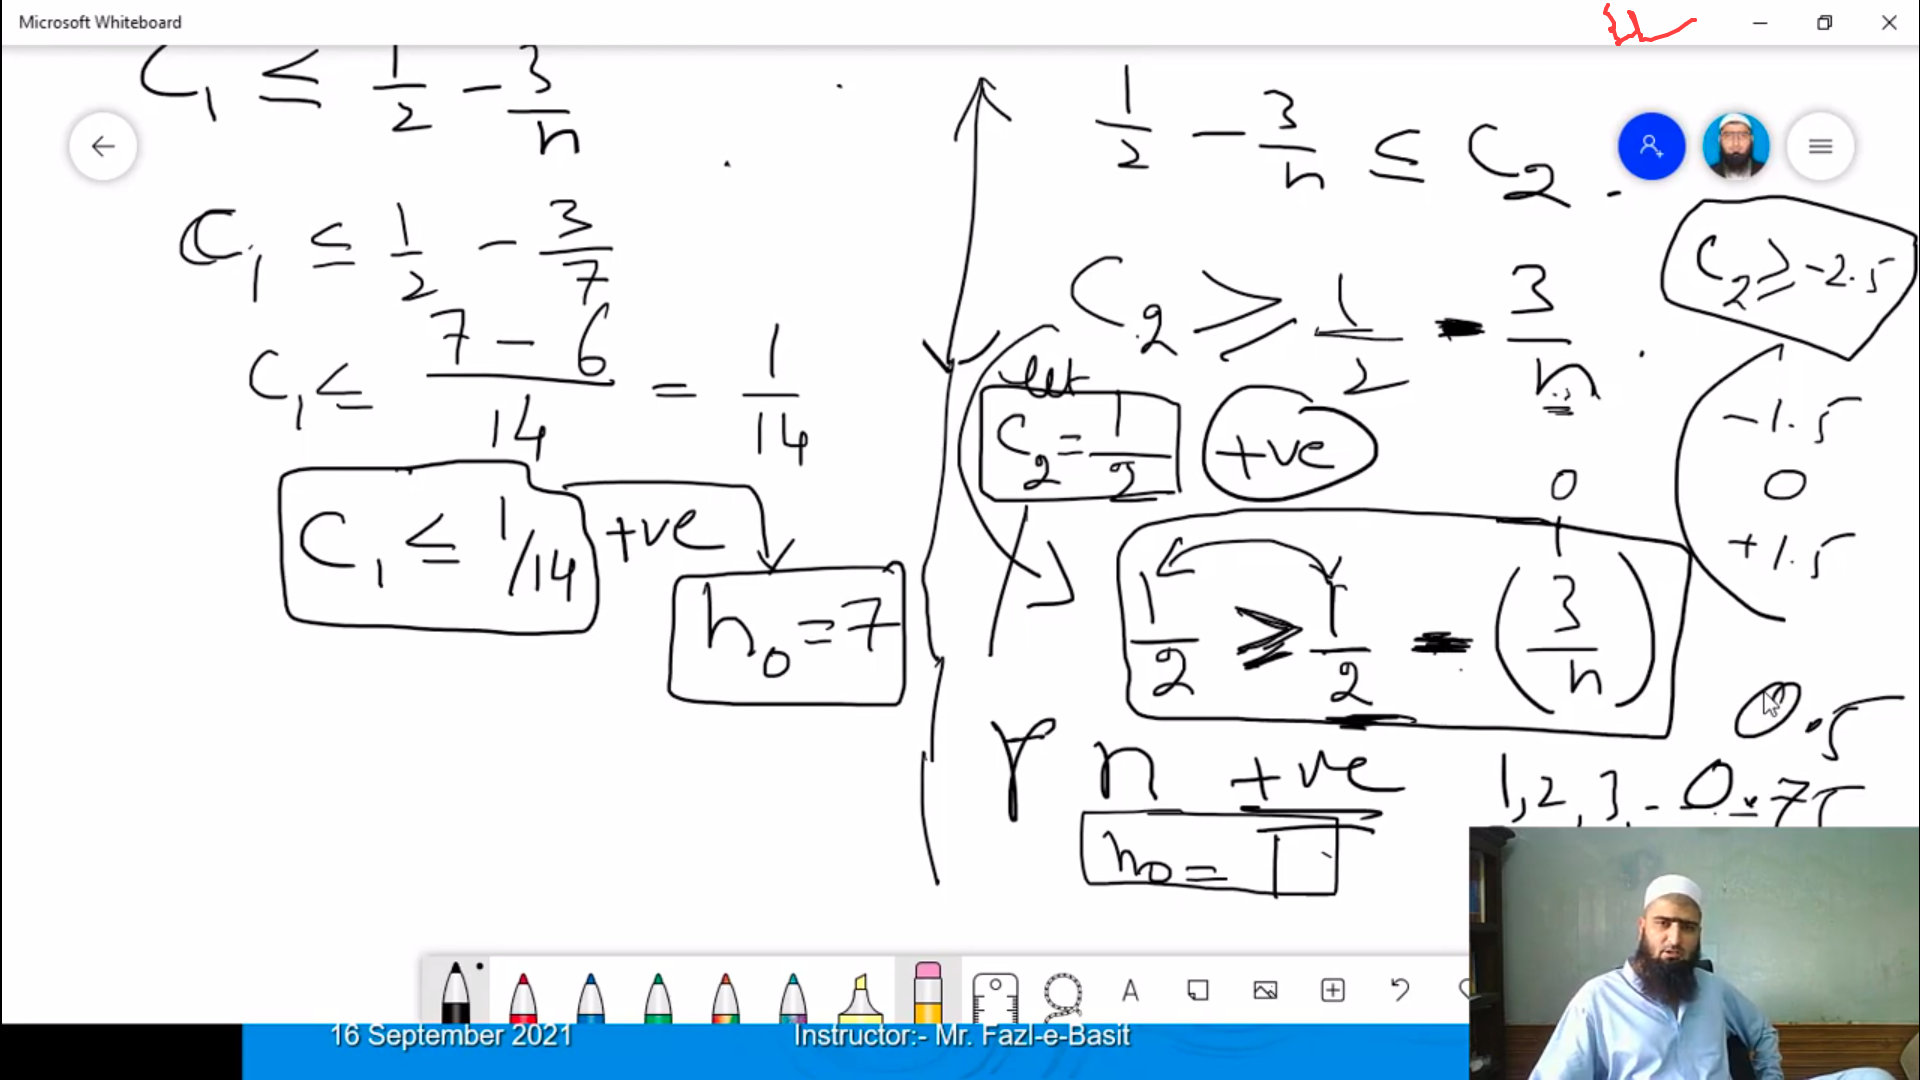 Microsoft Whiteboard
C₁ ≤ 1/2 - 3/n
C₁ ≤ 1/2 - 3/7
C₁ ≤ (7 - 6)/14 = 1/14
C₁ ≤ 1/14 +ve
n₀ = 7
1/2 - 3/n ≤ C₂
C₂ ≥ 1/2 - 3/n
C₂ ≥ -2.5
-1.5
0
+1.5
let
C₂ = 1/2 +ve
0
1/2 ≥ 1/2 - (3/n)
0.5
n +ve
1, 2, 3, - 0.75
n₀ =
A
16 September 2021
Instructor:- Mr. Fazl-e-Basit